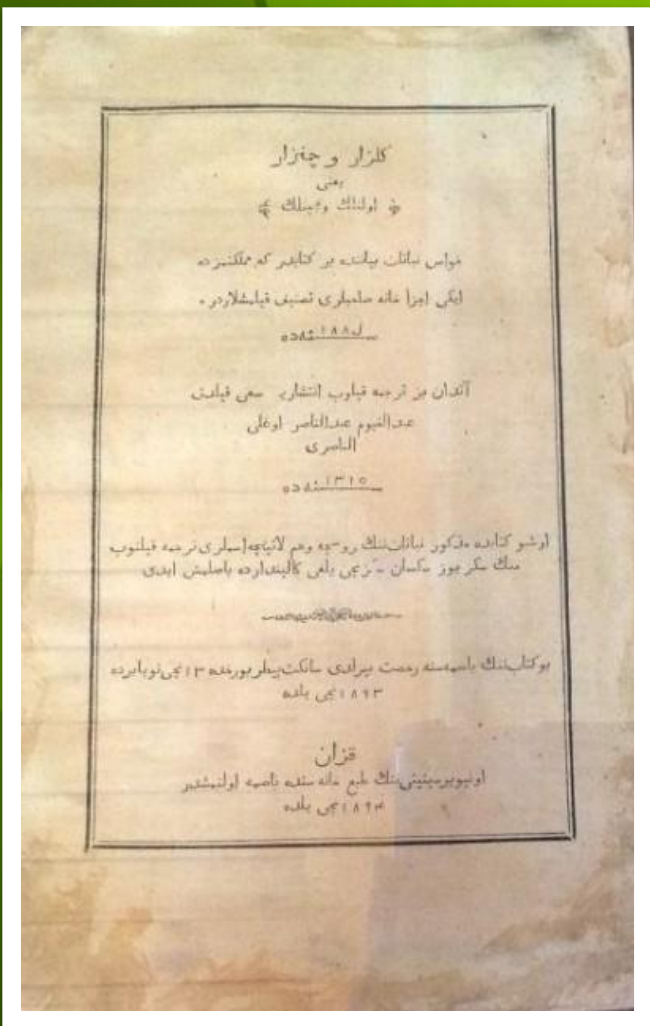 كلزار و چمنزار
يعنى
اولنلك و چمنلك
خواص نباتات بياننده بر كتابدر كه مملكتمزده
ايكى اجزا خانه صاحبلرى تصنيف قيلمشلاردر
١٨٨ سنه ده
آندان بز ترجمه قيلوب انتشارينه سعى قيلدق
عبدالقيوم عبدالناصر اوغلى
الناصرى
١٣١٥ سنه ده
اوشبو كتابده مذكور نباتاتننك روسچه وهم لاتينچه اسملرى ترجمه قيلنوب
منك سكز يوز سكسان سكزنچى يلغى كاليندارده باصلمش ايدى
بو كتابننك باصمه سنه رخصت بيرلدى سانكت پيطربورغده ١٣ نچى نويابرده
١٨٩٣ نچى يلده
قزان
اونيويرسيتيتى ننك طبع خانه سنده باصمه اولنمشدر
١٨٩٤ نچى يلده